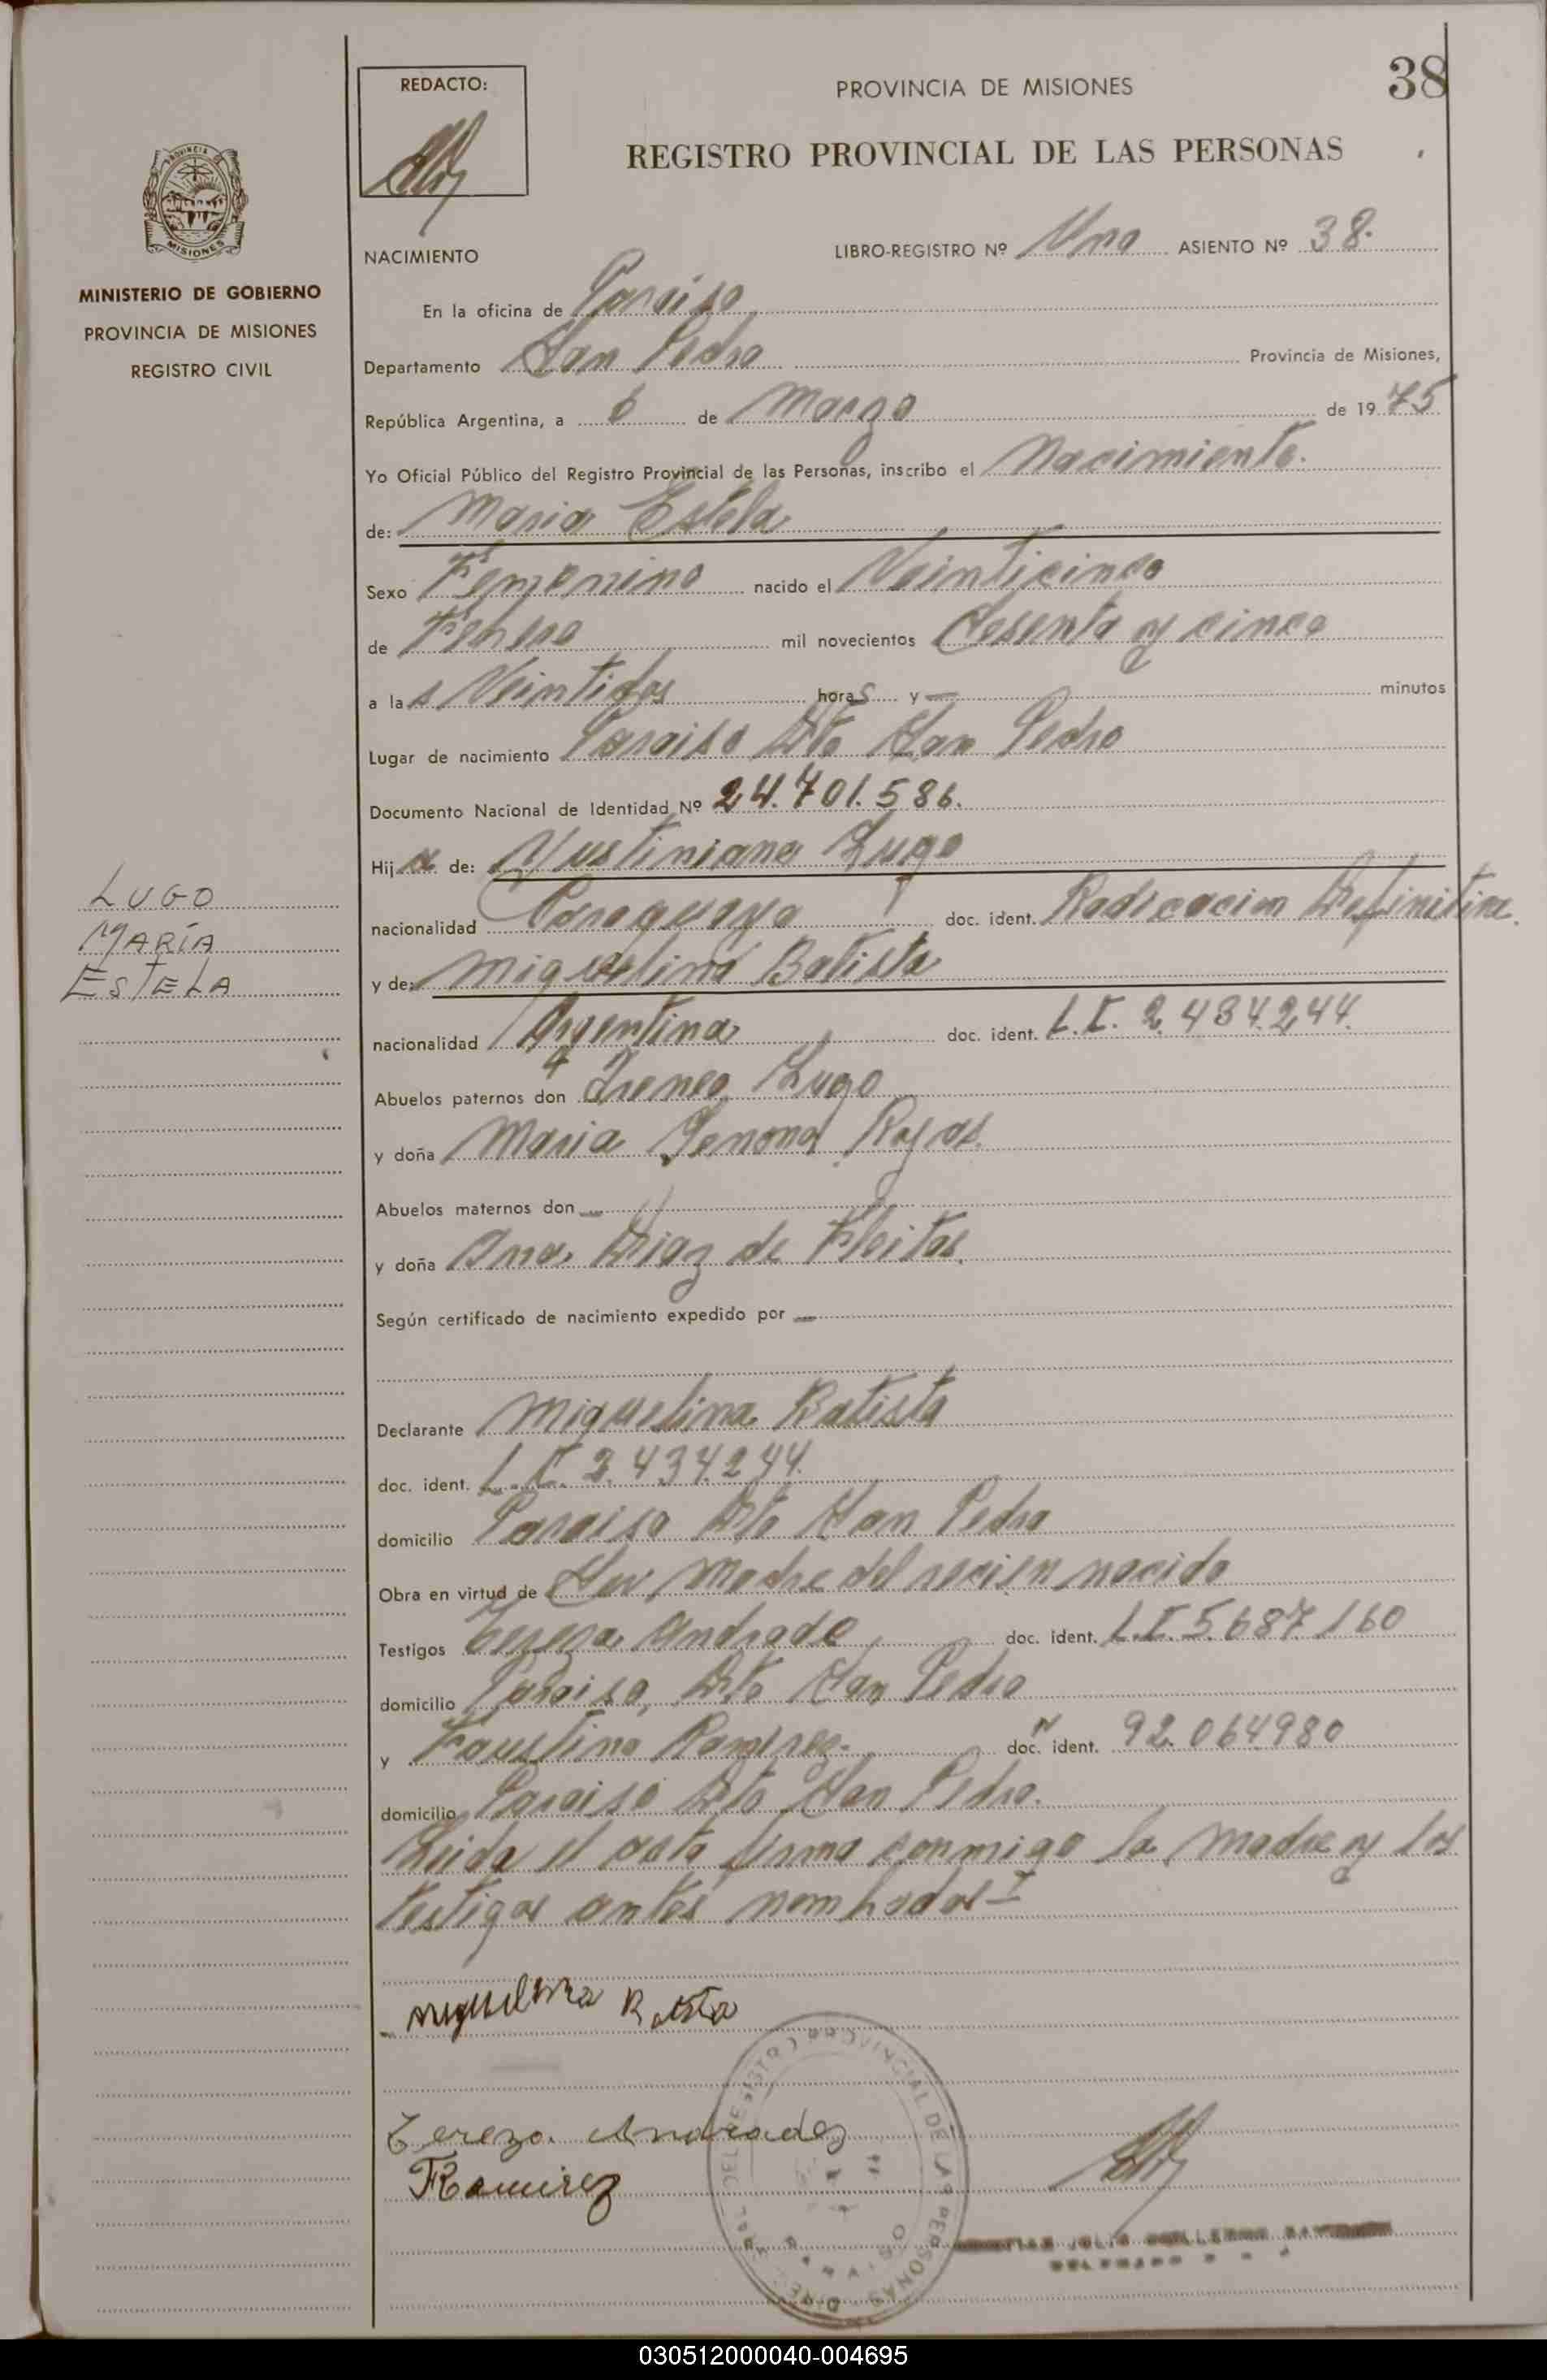 38
REDACTO:
PROVINCIA DE MISIONES
REGISTRO PROVINCIAL DE LAS PERSONAS
PROVINCIA DE
MISIONES
MINISTERIO DE GOBIERNO
PROVINCIA DE MISIONES
REGISTRO CIVIL
NACIMIENTO
LIBRO-REGISTRO Nº Uno ASIENTO Nº 38.
En la oficina de Paraiso
Departamento San Pedro Provincia de Misiones,
República Argentina, a 6 de Marzo de 1975
Yo Oficial Público del Registro Provincial de las Personas, inscribo el Nacimiento.
de: Maria Estela
Sexo Femenino nacido el Veinticinco
de Febrero mil novecientos Sesenta y cinco
a las Veintidos horas y — minutos
Lugar de nacimiento Paraiso Dto San Pedro
Documento Nacional de Identidad Nº 24.701.586.
Hija de: Justiniano Lugo
nacionalidad Paraguaya doc. ident. Radicacion Definitiva.
y de: Miguelina Batista
nacionalidad Argentina doc. ident. L.C. 2.434.244.
Abuelos paternos don Ireneo Lugo
y doña Maria Rojas.
Abuelos maternos don —
y doña Ana Diaz de Fleitas.
Según certificado de nacimiento expedido por —
Declarante Miguelina Batista
doc. ident. L.C. 2.434.244.
domicilio Paraiso Dto San Pedro
Obra en virtud de Ser, Madre del recien nacido
Testigos Tereza Andrade doc. ident. L.C. 5.687.160
domicilio Paraiso, Dto San Pedro
y Faustino Ramirez. doc. ident. 92.064980
domicilio Paraiso Dto San Pedro.
Leida el acta firma conmigo la Madre y los
testigos antes nombrados
LUGO
MARÍA
ESTELA
Miguelina Batista
Tereza Andrade
FRamirez
PROVINCIAL DE LAS PERSONAS
030512000040-004695